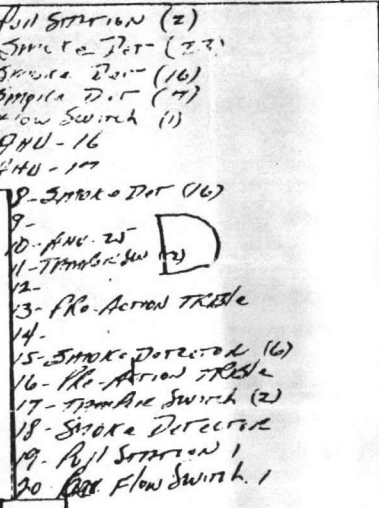 Pull Station (2)
Smoke Det (22)
Smoke Det (16)
Smoke Det (7)
Flow Switch (1)
AHU - 16
AHU - 17
8 - Smoke Det (16)
9 -
10 - AHU - 25
11 - (2)
12 -
13 - Pre-Action Trble
14 -
15 - Smoke Detector (6)
16 - Pre-Action Trble
17 - Tamper Switch (2)
18 - Smoke Detector
19 - Pull Station 1
20 Flow Switch 1
D